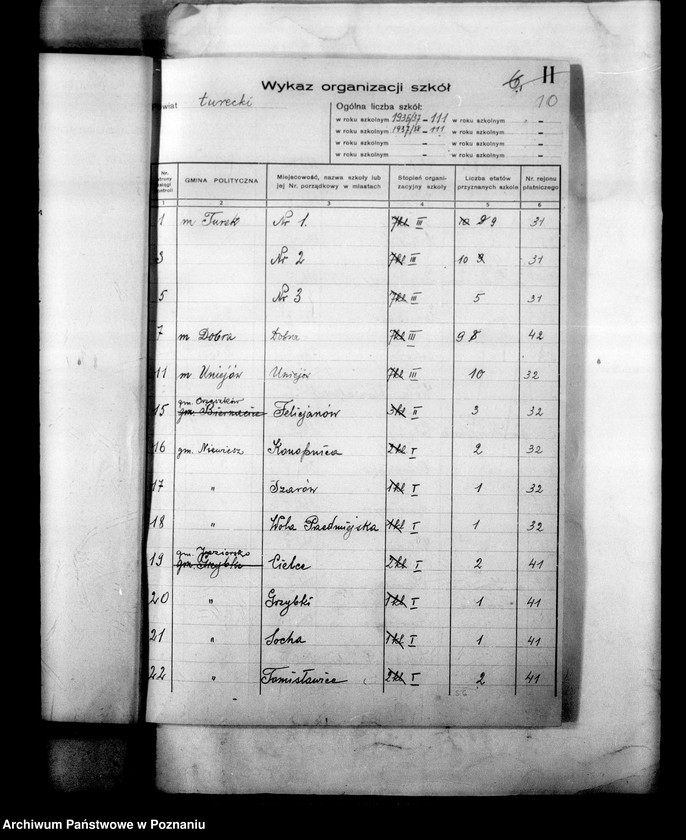 II
6.
10
Wykaz organizacji szkół
Powiat turecki
Ogólna liczba szkół:
w roku szkolnym 1936/37 - 111 w roku szkolnym -
w roku szkolnym 1937/38 - 111 w roku szkolnym -
w roku szkolnym - w roku szkolnym -
w roku szkolnym - w roku szkolnym -
Nr. strony GMINA POLITYCZNA Miejscowość, nazwa szkoły lub jej Nr. porządkowy w miastach Stopień organizacyjny szkoły Liczba etatów przyznanych szkole Nr. rejonu płatniczego
1 2 3 4 5 6
1 m Turek Nr 1. 7kl III 10 8 9 31
3 Nr 2 7kl III 10 9 31
5 Nr 3 7kl III 5 31
7 m Dobra Dobra 7kl III 9 8 42
11 m Uniejów Uniejów 7kl III 10 32
15 gm. Biernacice Felicjanów 3kl II 3 32
16 gm. Niewiesz Konopnica 2kl I 2 32
17 " Szarów 1kl I 1 32
18 " Wola Przedmiejska 1kl I 1 32
gm. Jeziorsko
19 gm. Grzybki Cielce 2kl I 2 41
20 " Grzybki 1kl I 1 41
21 " Socha 1kl I 1 41
22 " Tomisławice 2kl I 2 41
Archiwum Państwowe w Poznaniu